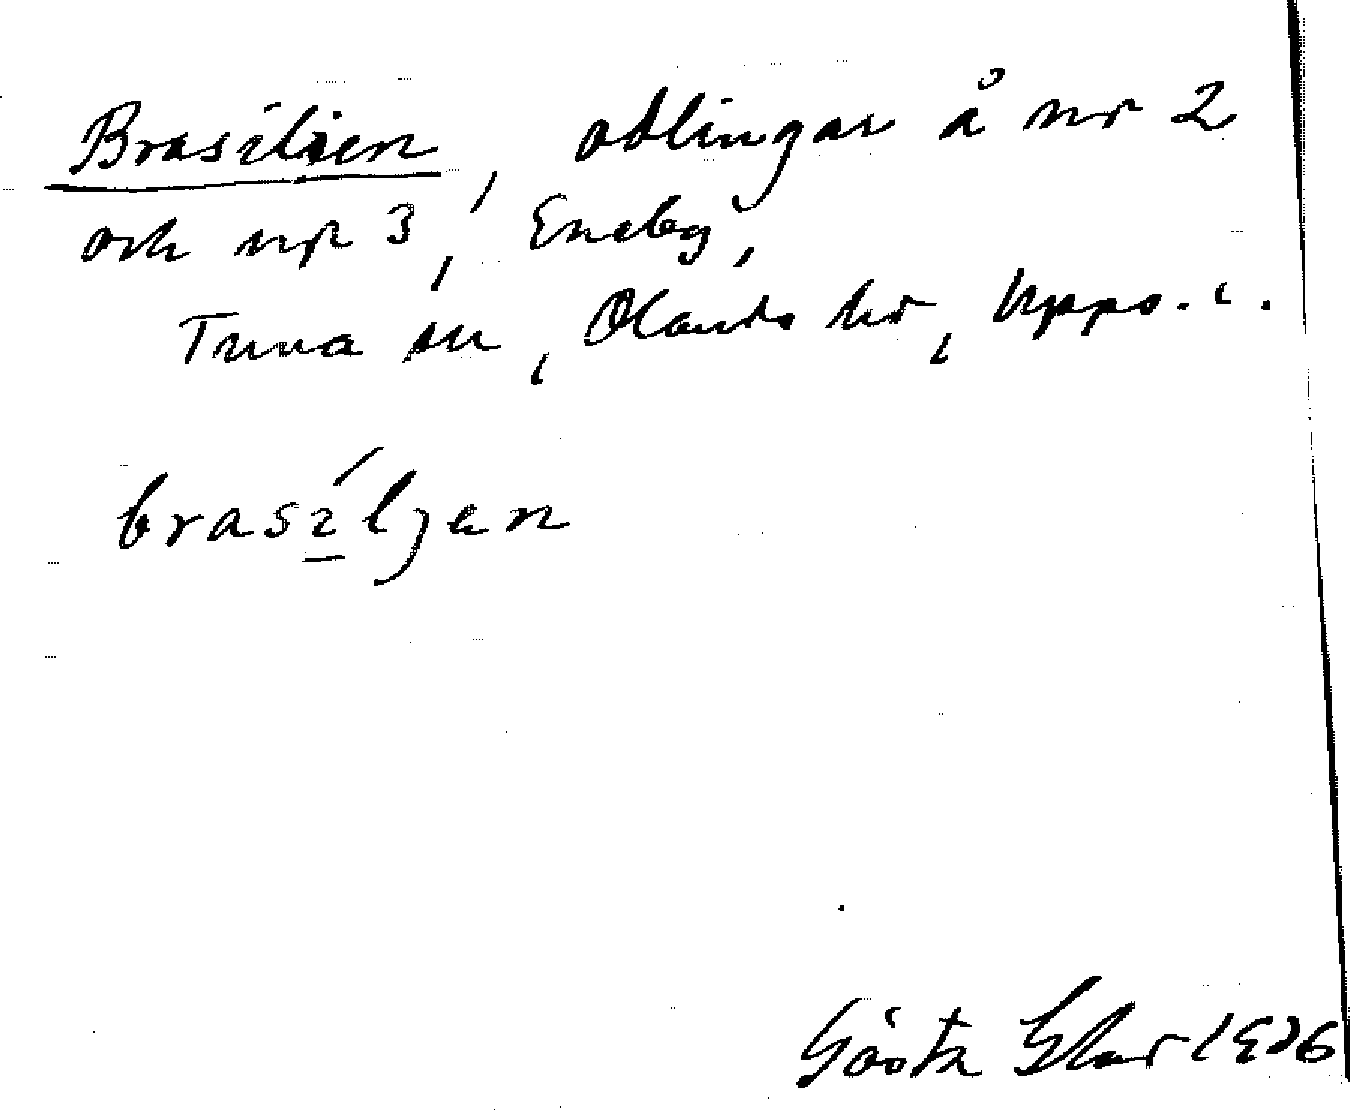 Brasilien, odlingar å nr 2
och nr 3, Eneby,
Tuna sn, Olands hd, Upps. l.
brasíljen
Gösta 1926